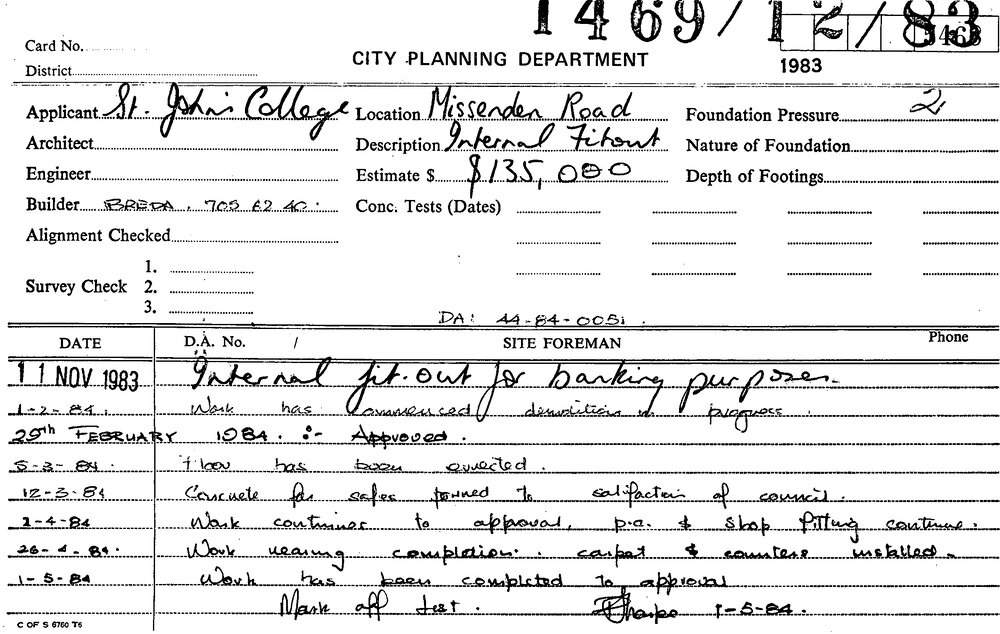 1469/12/83
Card No.
CITY PLANNING DEPARTMENT
1983
District
Applicant St. John's College Location Missenden Road Foundation Pressure 2
Architect Description Internal Fitout Nature of Foundation
Engineer Estimate $ $135,000 Depth of Footings
Builder BREDA. 705 62 40. Conc. Tests (Dates)
Alignment Checked
1.
Survey Check 2.
3.
DA: 44-84-0051.
DATE D.A. No. / SITE FOREMAN Phone
11 NOV 1983 Internal fit-out for banking purposes.
1-2-84. Work has commenced demolition in progress.
29th FEBRUARY 1984. :- Approved.
5-3-84. Floor has been erected.
12-3-84 Concrete for safes poured to satifaction of council.
2-4-84 Work continues to approval, p.c. & shop fitting continue.
26-4-84. Work nearing completion. carpet & counters installed.
1-5-84 Work has been completed to approval
Mark off list. 1-5-84.
C OF S 6760 T6